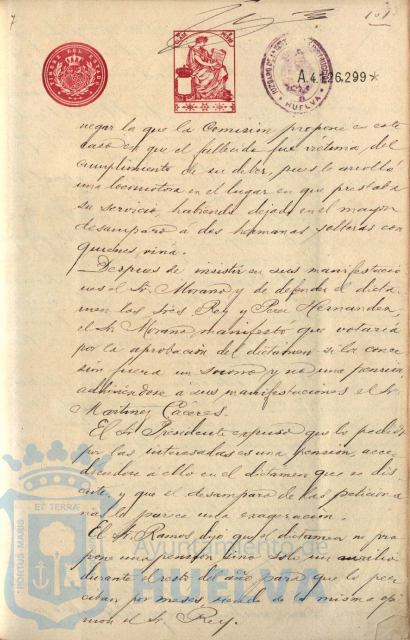 101
TIMBRE DEL ESTADO
HUELVA
A.4.126.299*
negar la que la Comisión propone en este
caso en que el fallecido fué víctima del
cumplimiento de su deber, pues lo arrolló
una locomotora en el lugar en que prestaba
su servicio, habiendo dejado en el mayor
desamparo á dos hermanas solteras con
quienes vivia.
Despues de insistir en sus manifestacio
nes el Sr. Morano y de defender el dicta
men los Sres Rey y Perez Hernandez,
el Sr. Morano, manifestó que votaría
por la aprobación del dictamen si la conce
sión fuera un socorro y no una pensión,
adhiriéndose á sus manifestaciones el Sr.
Martinez Cáceres.
El Sr. Presidente expuso que lo pedido
por las interesadas es una pensión, acce
diendose á ello en el dictamen que se dis
cute, y que el desamparo de las peticiona
rias le parece una exageración.
El Sr. Ramos dijo que el dictamen no pro
pone una pensión sino solo un auxilio
durante el resto del año para que lo per
ciban por meses, siendo de la misma opi
nión el Sr. Rey.
ET TERRÆ
PORTUS MARIS
Ayuntamiento de
HUELVA